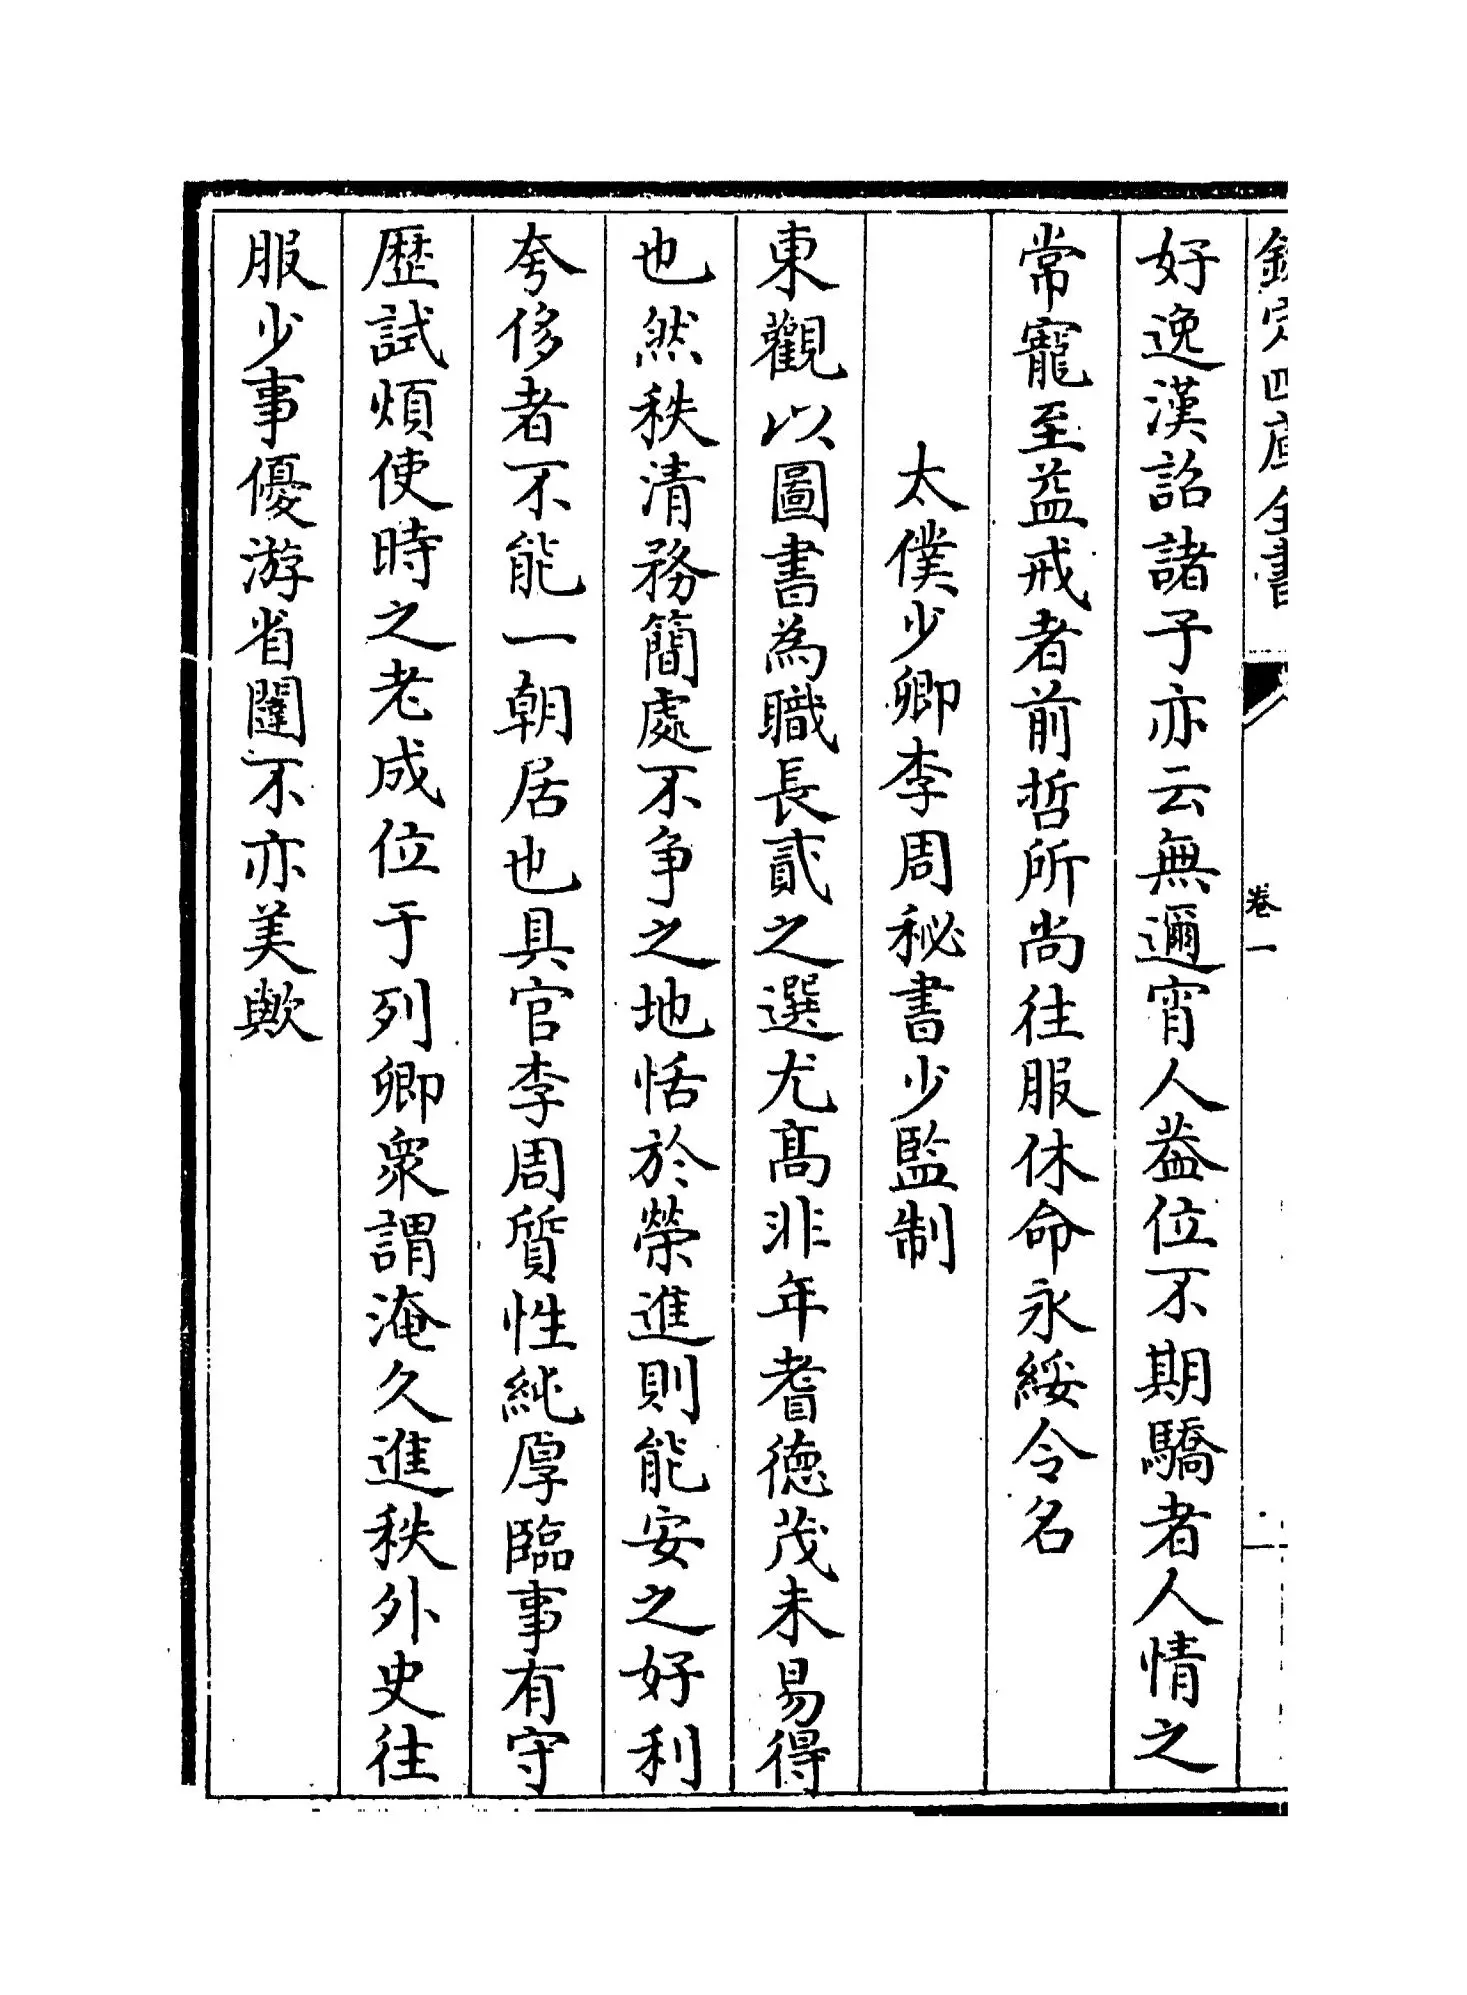 欽定四庫全書
卷一
好逸漢詔諸子亦云無邇宵人葢位不期驕者人情之
常寵至益戒者前哲所尚往服休命永綏令名
太僕少卿李周秘書少監制
東觀以圖書為職長貳之選尤髙非年耆徳茂未易得
也然秩清務簡處不争之地恬於榮進則能安之好利
夸侈者不能一朝居也具官李周質性純厚臨事有守
歴試煩使時之老成位于列卿衆謂淹久進秩外史往
服少事優游省闥不亦美歟